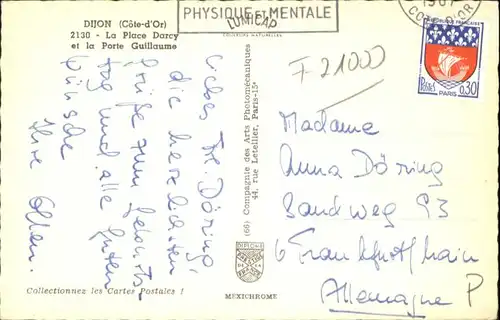 DIJON (Côte-d'Or)
2130 - La Place Darcy
et la Porte Guillaume
PHYSIQUE et MENTALE
LUMICAP
COULEURS NATURELLES
CÔTE D'OR
RÉPUBLIQUE FRANÇAISE
Postes
0,30
PARIS
F-21000
Liebes Frl. Döring,
die herzlichsten
Grüße zum Geburts-
tag und alle guten
Wünsche
Ihre
(66) Compagnie des Arts Photomécaniques
44, rue Letellier, Paris-15e
Madame
Anna Döring
Sandweg 93
6 Frankfurt/Main
Allemagne P
Collectionnez les Cartes Postales !
MEXICHROME